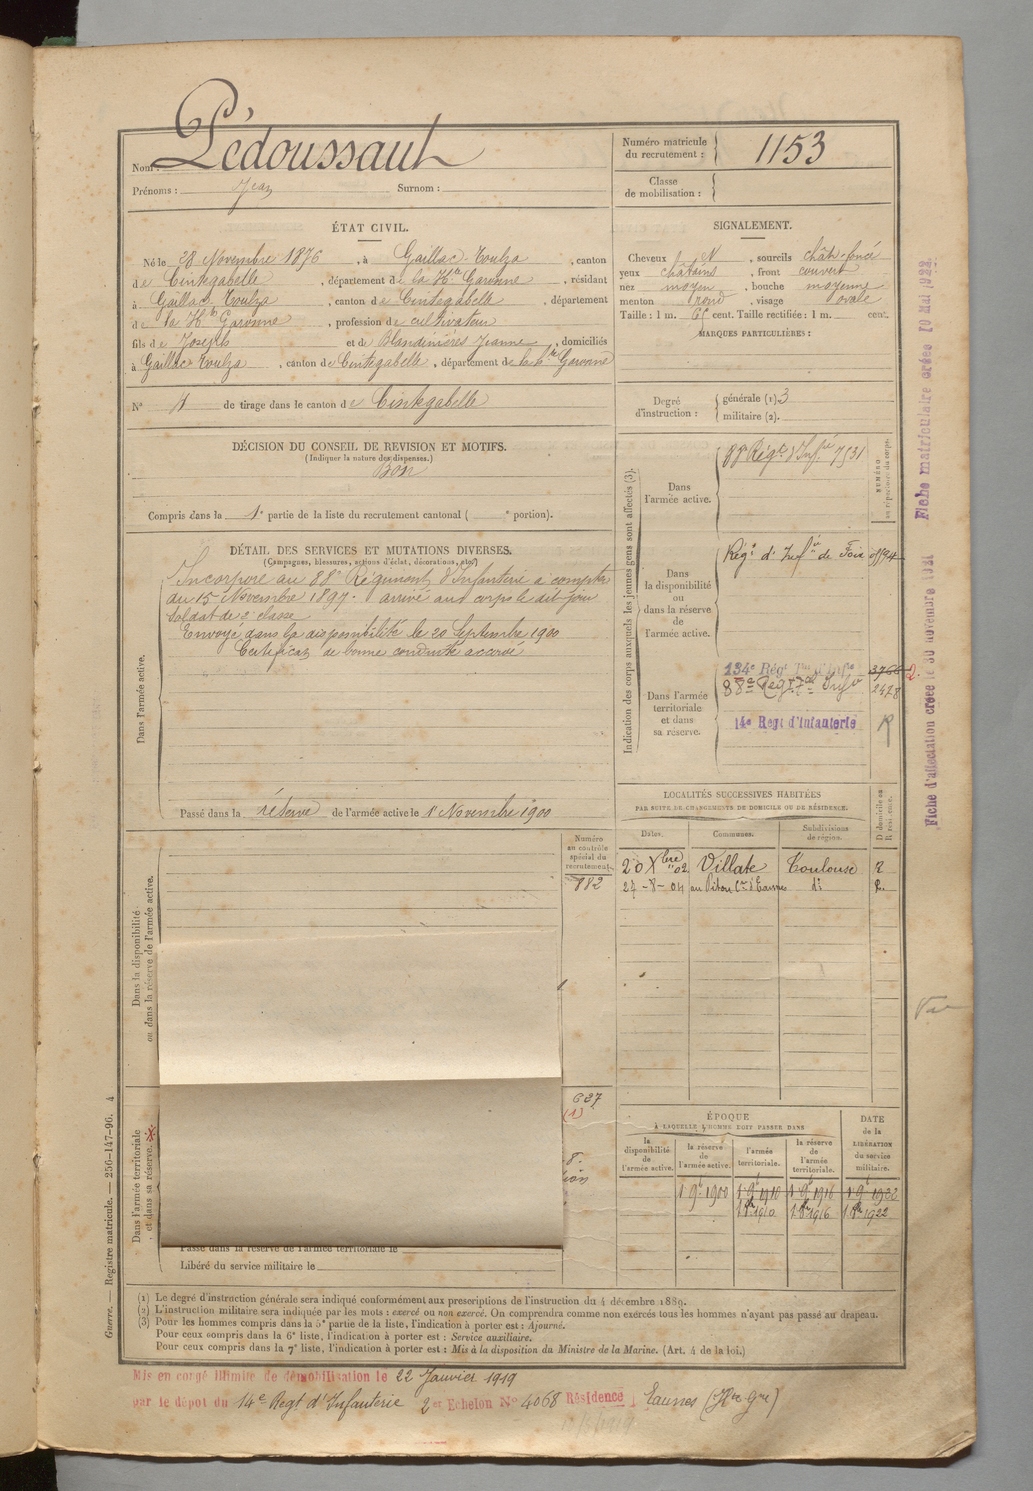 Nom : Pédoussaut
Prénoms : Jean Surnom :
Numéro matricule du recrutement : 1153
Classe de mobilisation :
ÉTAT CIVIL.
Né le 28 Novembre 1876, à Gaillac-Toulza, canton
de Cintegabelle, département de la Hte Garonne, résidant
à Gaillac-Toulza, canton de Cintegabelle, département
de la Hte Garonne, profession de cultivateur
fils de Joseph et de Blandinières Jeanne, domiciliés
à Gaillac-Toulza, canton de Cintegabelle, département de la Hte Garonne
N° de tirage dans le canton de Cintegabelle
SIGNALEMENT.
Cheveux N, sourcils chât. foncé
yeux châtains, front couvert
nez moyen, bouche moyenne
menton rond, visage ovale
Taille : 1 m. 65 cent. Taille rectifiée : 1 m. cent.
MARQUES PARTICULIÈRES :
Degré d'instruction : générale (1). 3
militaire (2).
DÉCISION DU CONSEIL DE REVISION ET MOTIFS.
(Indiquer la nature des dispenses.)
Bon
Compris dans la 1e partie de la liste du recrutement cantonal ( e portion).
DÉTAIL DES SERVICES ET MUTATIONS DIVERSES.
(Campagnes, blessures, actions d'éclat, décorations, etc.)
Dans l'armée active.
Incorporé au 88e Régiment d'Infanterie à compter
du 15 Novembre 1897. arrivé au corps le dit jour
Soldat de 2e classe
Envoyé dans la disponibilité le 20 Septembre 1900
Certificat de bonne conduite accordé
Passé dans la réserve de l'armée active le 1er Novembre 1900
Indication des corps auxquels les jeunes gens sont affectés (3).
NUMÉRO au répertoire du corps.
Dans l'armée active.
88e Régt d'Infie 7531
Dans la disponibilité ou dans la réserve de l'armée active.
Régt d'Infie de Foix
Dans l'armée territoriale et dans sa réserve.
134e Régt Ter d'Infie
88e Régt d'Infie 2478
14e Regt d'Infanterie
LOCALITÉS SUCCESSIVES HABITÉES
PAR SUITE DE CHANGEMENTS DE DOMICILE OU DE RÉSIDENCE.
Dates. Communes. Subdivisions de région. D domicile ou R résidence.
20 Xbre 02 Villate Toulouse R
27-8-04 au Pitou Cne d'Eaunes di R.
Dans la disponibilité ou dans la réserve de l'armée active.
Numéro au contrôle spécial du recrutement.
882
637
(1)
Dans l'armée territoriale et dans sa réserve.
Passé dans la réserve de l'armée territoriale le
Libéré du service militaire le
ÉPOQUE
À LAQUELLE L'HOMME DOIT PASSER DANS
la disponibilité de l'armée active. la réserve de l'armée active. l'armée territoriale. la réserve de l'armée territoriale. DATE de la LIBÉRATION du service militaire.
1 9e 1900 1 9e 1910 1 9e 1916 1 9e 1922
1910 1916 1922
(1) Le degré d'instruction générale sera indiqué conformément aux prescriptions de l'instruction du 4 décembre 1889.
(2) L'instruction militaire sera indiquée par les mots : exercé ou non exercé. On comprendra comme non exercés tous les hommes n'ayant pas passé au drapeau.
(3) Pour les hommes compris dans la 5e partie de la liste, l'indication à porter est : Ajourné.
Pour ceux compris dans la 6e liste, l'indication à porter est : Service auxiliaire.
Pour ceux compris dans la 7e liste, l'indication à porter est : Mis à la disposition du Ministre de la Marine. (Art. 4 de la loi.)
Mis en congé illimité de démobilisation le 22 Janvier 1919
par le dépot du 14e Regt d'Infanterie 2e Echelon N° 4068 Résidence Eaunes (Hte Gne)
Guerre. — Registre matricule. — 256-147-96. 4
Fiche matriculaire créée 10 Mai 1922
Fiche d'affectation créée le 30 novembre 1921